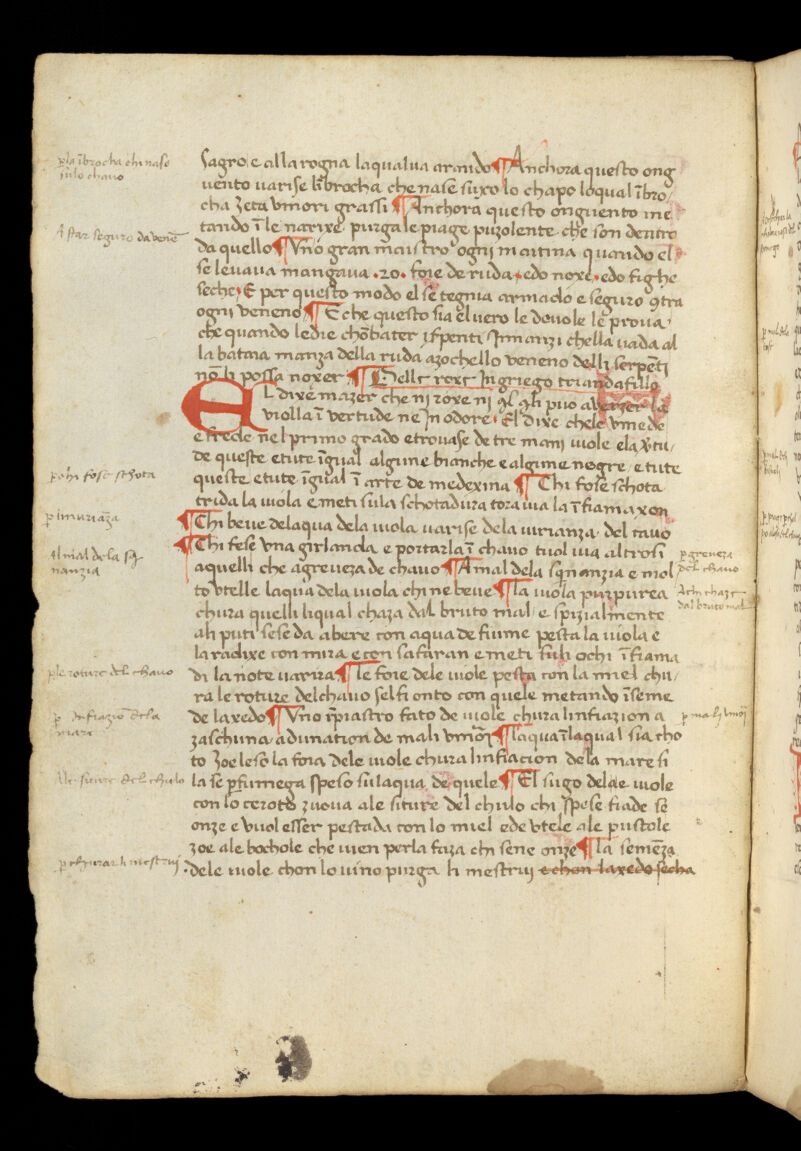 sagro e alla rogna la qual ua arando ¶ Anchora questo ong
uento uarise l'ibrocha che nase suxo lo chapo loqual ībro/
cha zeta vmori grassi ¶ Anchora questo onguento me
tando ī le narixe purga le piage puzolente che son dentro
da quello ¶ Vno gran maistro ogni maitina quando el
se leuaua mangaua .20. foie de ruda edo noxe edo fighe
seche E per questo modo el se tegnia armado e seguro 9tra
ogni veneno ¶ E che questo sia el uero le donole le proua
che quando le die chōbater i serpenti Innanzi chella uada al
la bataia manza della ruda azochello veneno delli serpēti
nō li possa noxer ¶ Delle roxe In griego triandafillo
EL dixe mazer che ni roxe ni
violla ī vertude ne In odore El dixe chele vmede
e frede nel primo grado e trouase de tre mani uiole
de queste e tute īgual algune bianche e algune negre e tute
queste e tute īgual ī arte de medexina ¶ Chi fose schota
trida la uiola e meti sula schotadura tora uia la īfiamaxon
¶ Chi beue delaqua dela uiola uarise dela uirianza del cauo
¶ Chi fese vna girlanda e portarla ī chauo tuol uia altrosi
aquelli che agreueza de chauo ¶ A mal dela sqnanzia e mol
to vtelle laqua dela uiola chi ne beue ¶ la uiola purpurea
chura quelli liqual chaza dal bruto mal e spizialmente
ali puti se se da abere con aqua de fiume pesta la uiola e
la radixe con mira e con safaran e meti suli ochi ī fiama
di la note uarira ¶ le foie dele uiole pesta con la miel chu/
ra le roture del chauo sel fi onto con quele metando īseme
de laxedo ¶ Vno īpiastro fato de uiole chura linfiazion a
zaschuna adunation de mali vmori ¶ laqua īlaqual sia cho
to zoe leso la foia dele uiole chura linfiacion dela mare si
la se pfumega speso sulaqua de quele ¶ El sugo delle uiole
con lo ceroto zuoua ale siture del chulo chi spese fiade se
onze e vuol esser pestada con lo miel ede vtele ale pustole
zoe ale bochole che uien per la faza chi sene onze ¶ la semēza
dele uiole chon lo uino purga li mestrui e chon laxedo secha
p la ībrocha chi nase
su lo chauo
A star seguro da venē
p chi fose schota
p la uirianza
Al mal de la sq
nanzia
p agreueza
del chauo
A chi chaze
dal bruto mal
p le roture del chauo
p infiazion dela
mare
p mali vmori
Ale siture del chulo
p churar li mestrui